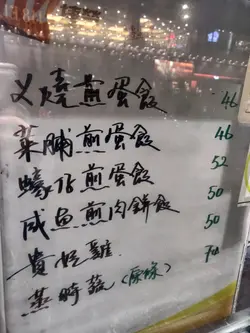 义燒煎蛋飯 46
菜脯煎蛋飯 46
蠔仔煎蛋飯 52
咸魚煎肉餅飯 50
貴妃雞 50
蒸時蔬 74